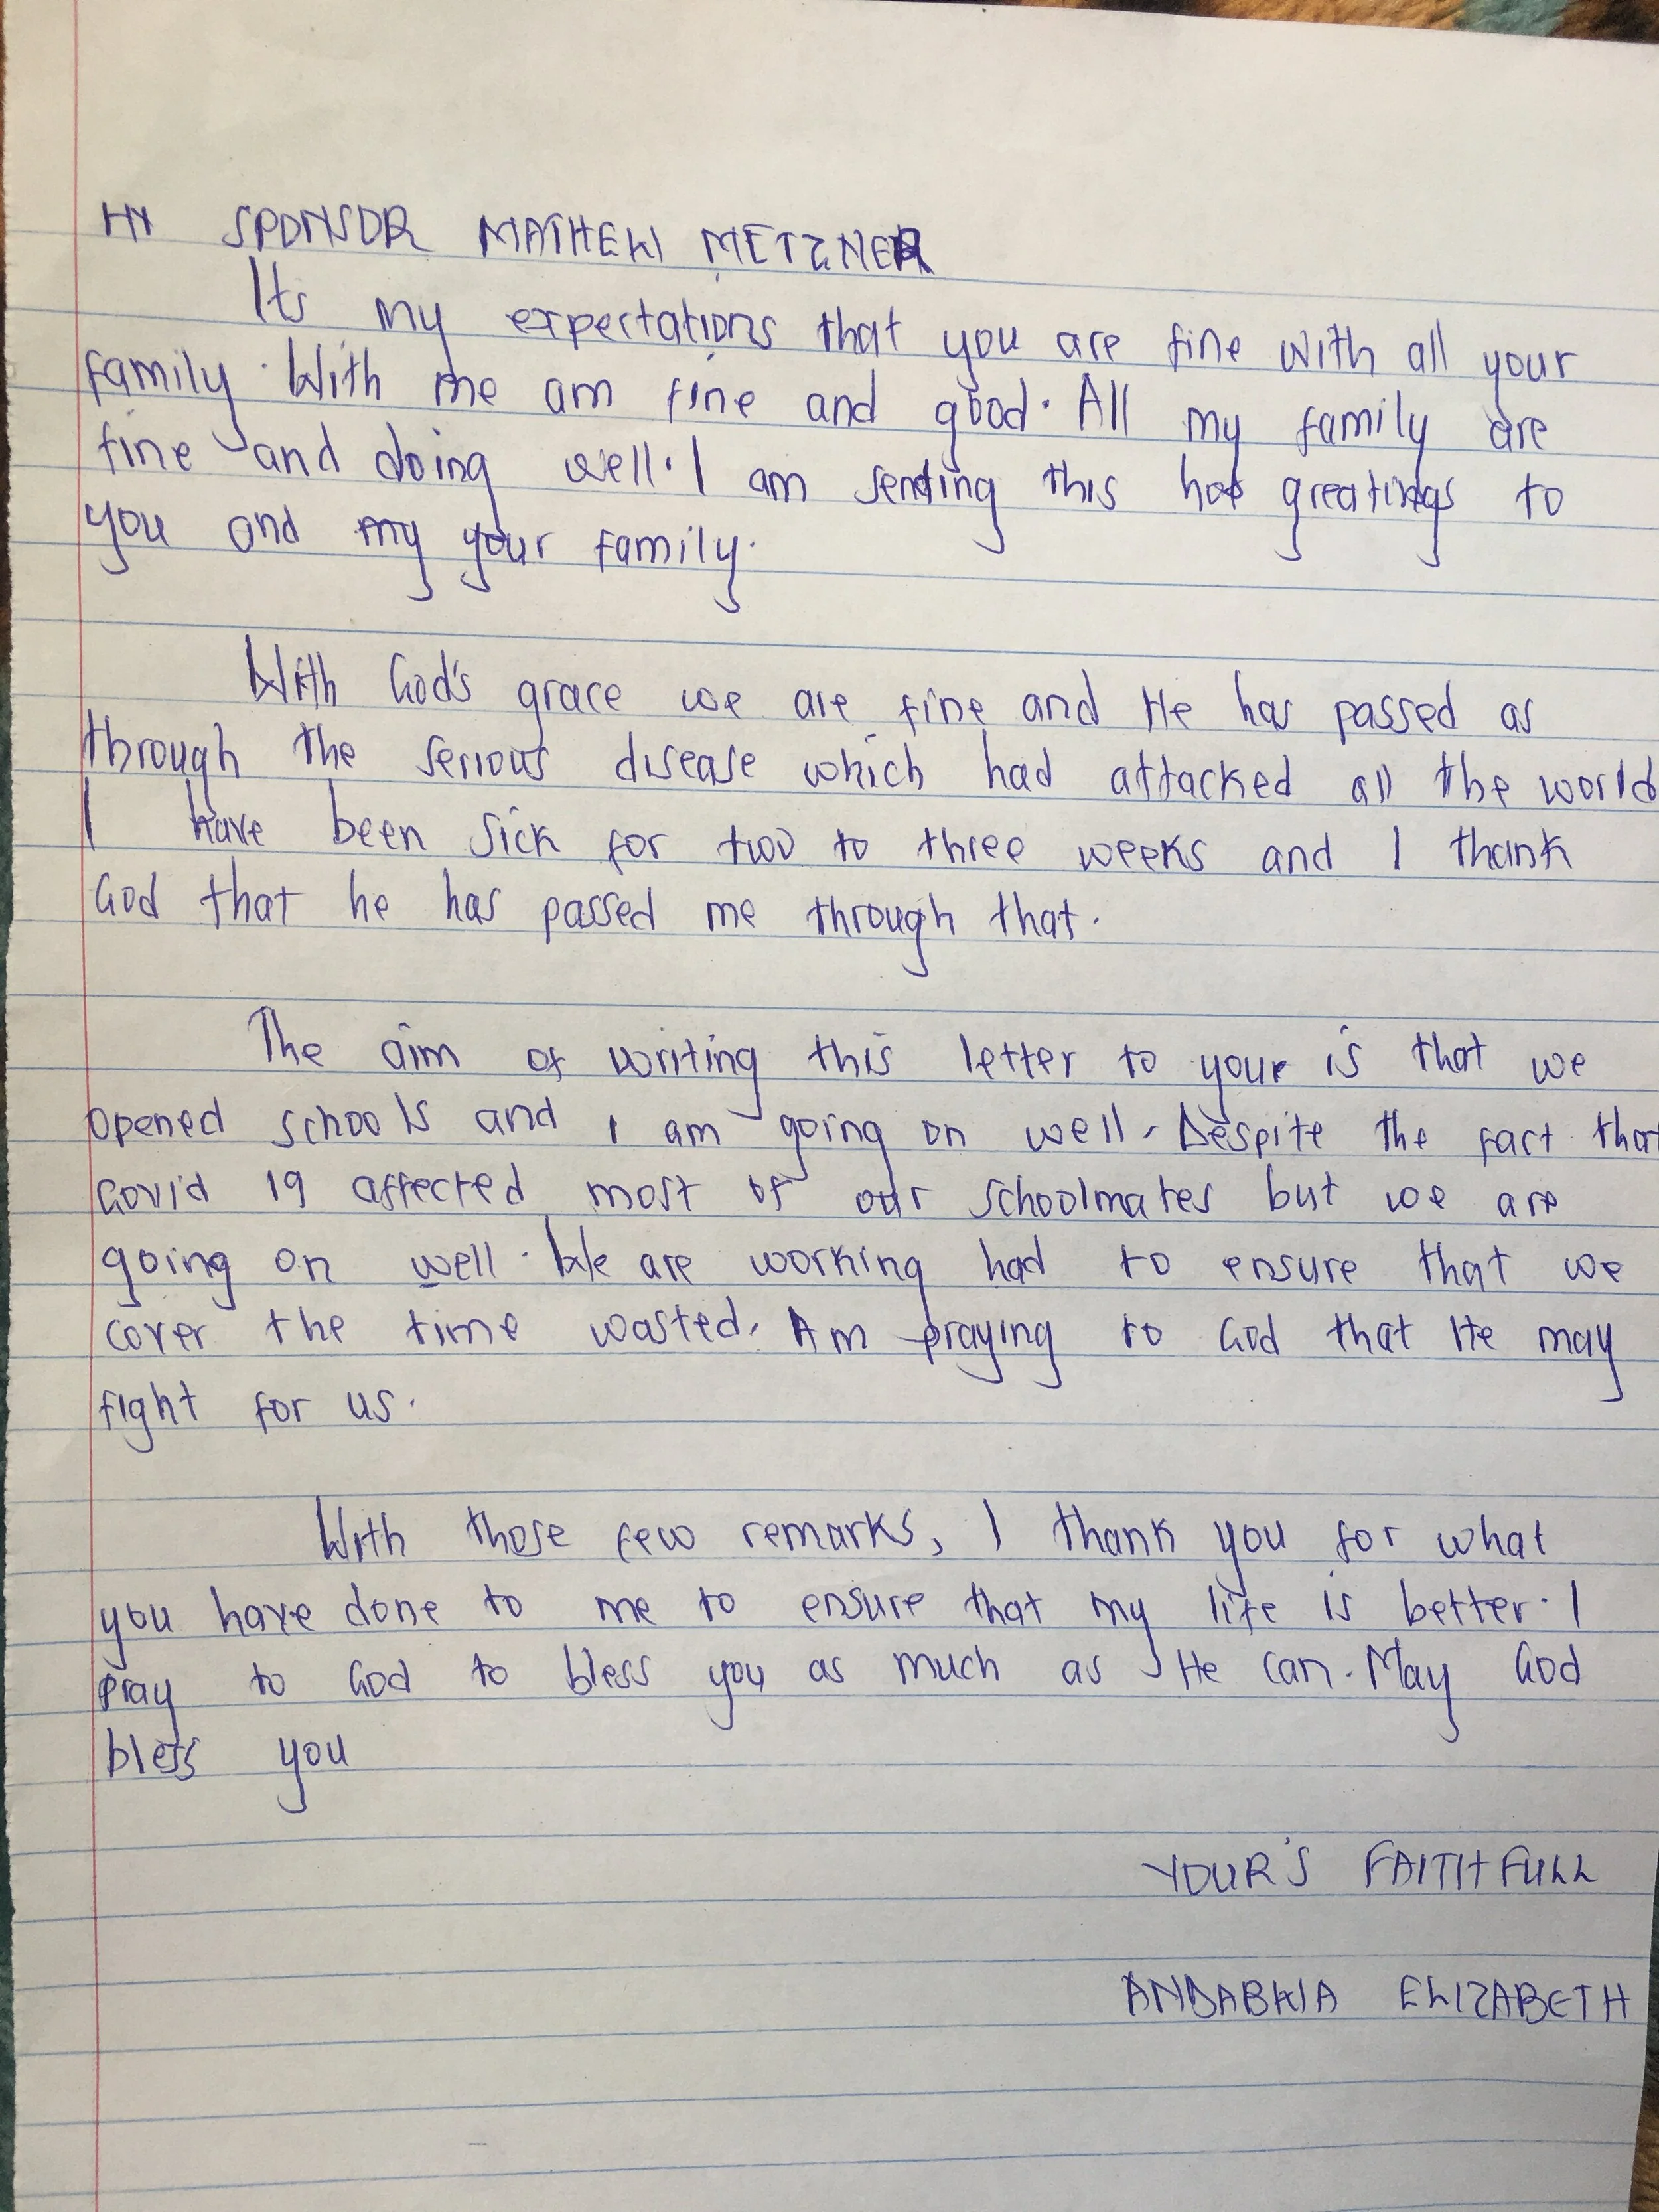 HI SPONSOR MATHEW METZNER
Its my expectations that you are fine with all your
family. With me am fine and good. All my family are
fine and doing well. I am sending this hot greatings to
you and my your family.
With God's grace we are fine and He has passed as
through the serious disease which had attacked all the world
I have been sick for two to three weeks and I thank
God that he has passed me through that.
The aim of writing this letter to your is that we
opened schools and I am going on well. Despite the fact that
Covid 19 affected most of our schoolmates but we are
going on well. We are working had to ensure that we
cover the time wasted. Am praying to God that He may
fight for us.
With those few remarks, I thank you for what
you have done to me to ensure that my life is better. I
pray to God to bless you as much as He can. May God
bless you
YOUR'S FAITHFULL
ANDABWA ELIZABETH